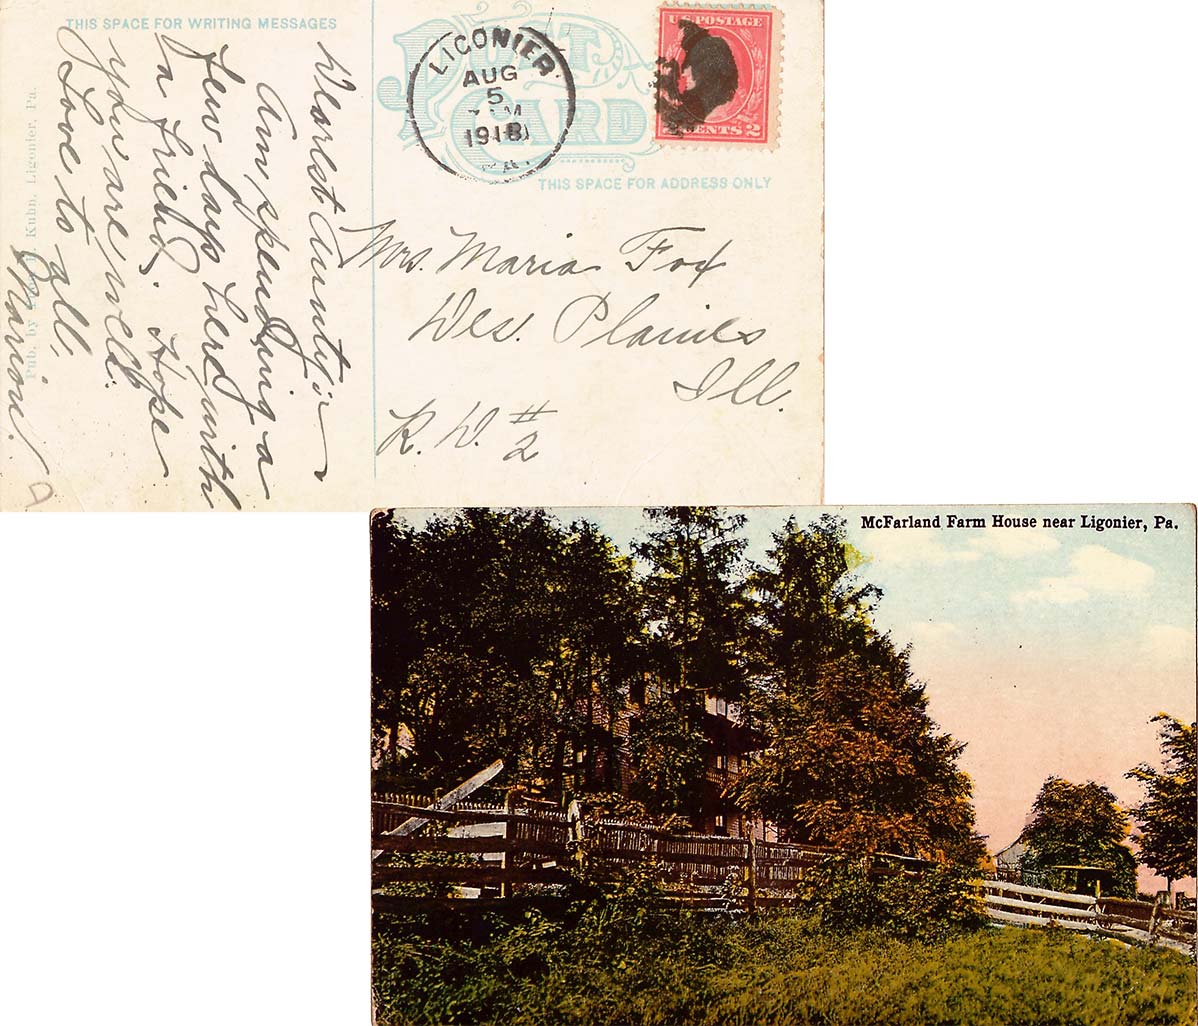 THIS SPACE FOR WRITING MESSAGES
POST CARD
THIS SPACE FOR ADDRESS ONLY
LIGONIER
AUG
5
M
1918
PA.
U.S. POSTAGE
2 CENTS 2
Dearest Aunty:-
Am spending a
few days here with
a friend. Hope
you are well.
Love to all,
Marion.
Mrs. Maria Fox
Des. Plaines
Ill.
R. D. #2
Pub. by Kuhn, Ligonier, Pa.
McFarland Farm House near Ligonier, Pa.